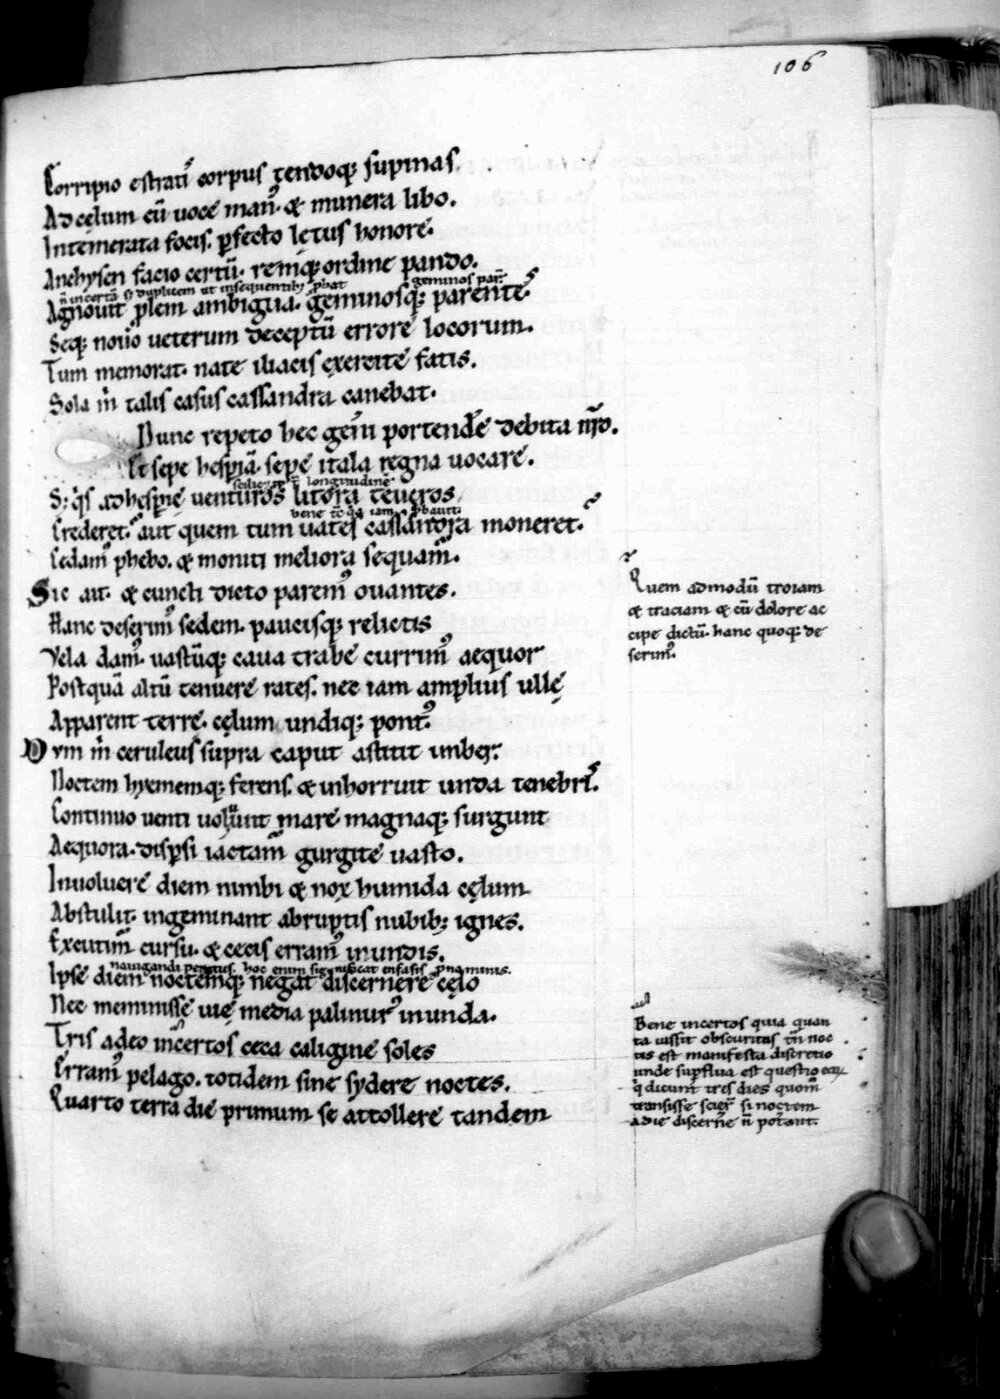 106
Corripio estratī corpus tendoq; supinas.
Ad cęlum cū uoce man᷒. & munera libo.
Intemerata focis. pfecto lętus honore.
Anchysen facio certū. remq; ordine pando.
n̄ incertā s; duplicem ut insequentib; pbat geminos par̄
Agnouit plem ambigua. geminosq; parente᷒.
Seq; nouo ueterum deceptū errore locorum.
Tum memorat. nate iliacis exercite fatis.
Sola m̄ talis casus cassandra canebat.
Nunc repeto hec gen̄i portende debita nr̄o.
Et sepe hesp̄iā. sepe itala regna uocare.
longitudinē
S; q̄s ad hesp̄ię uenturos litora teucros.
bene
Crederet. aut quem tum uates cassandra moneret.
Cedam᷒ phebo. & moniti meliora sequam᷒.
Sic ait. & cuncti dicto parem᷒ ouantes.
Hanc deserim᷒ sedem. paucisq; relictis
Vela dam᷒. uastūq; caua trabe currim᷒ aequor
Postquā altū tenuere rates. nec iam amplius ullę
Apparent terre. cęlum undiq; pont᷒.
Dvm m̄ ceruleus supra caput astitit imber.
Noctem hyememq; ferens. & inhorruit unda tenebri᷒.
Continuo uenti uoluunt mare magnaq; surgunt
Aequora. dispsi iactam᷒ gurgite uasto.
Inuoluere diem nimbi & nox humida cęlum
Abstulit. ingeminant abruptis nubib; ignes.
Excutim᷒ cursu. & cecis erram᷒ inundis.
nauigandi peritus. hoc enim significat enfasis pnominis.
Ipse diem noctemq; negat discernere cęlo
Nec meminisse uię media palinur᷒ inunda.
Tris adeo incertos ceca caligine soles
Erram᷒ pelago. totidem sine sydere noctes.
Quarto terra die primum se attollere tandem
Quem admodū troiam
& traciam & cū dolore ac
cipe dictū. hanc quoq; de
serim᷒.
Bene incertos quia quan
ta uissit obscuritas tn̄ noc
tis est manifesta discretio
unde supflua est questio eoꝝ
q̄ dicunt tres dies quom̄
transisse scier̄ si noctem
adie discerne n̄ poterant.